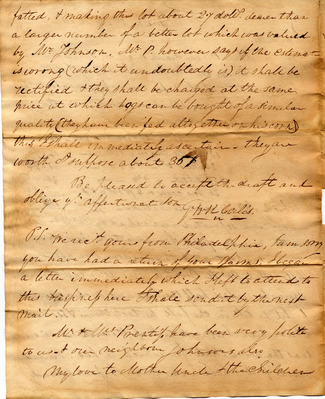 fatted, & making this lot about 27 dolls. dearer than
a larger number of a better lot which was valued
by Mr. Johnson. Mr P. however says if the
is wrong (which it undoubtedly is) it shall be
rectified & they shall be charged at the same
price at which hogs can be bought of a similar
quality (they have been fed altogether on his corn)
this I shall immediately ascertain. they are
worth I suppose about 36/
Be pleased to accept the draft and
oblige yr. affectionate son
P.S. We rec'd yours from Philadelphia, I am sorry
you have had a return of your
a letter immediately which I left to attend to
this & shall send it by the next
mail.
Mr. & Mrs. Prentiss have been very polite
to us & our neighbour Johnsons also
My love to Mother Uncle & the Children